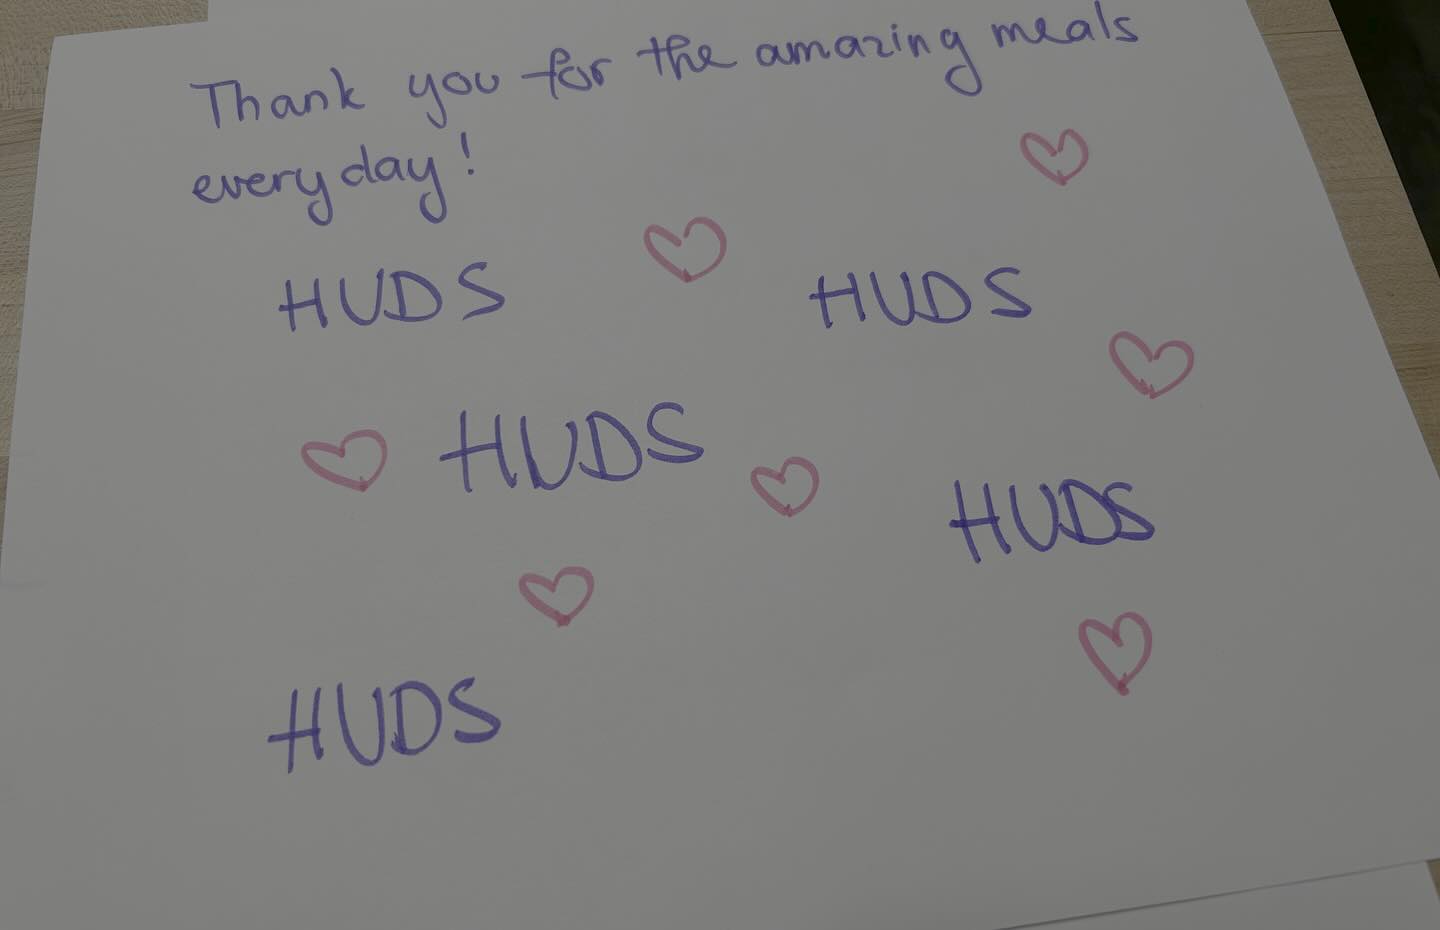 Thank you for the amazing meals
everyday!
HUDS HUDS
HUDS
HUDS
HUDS